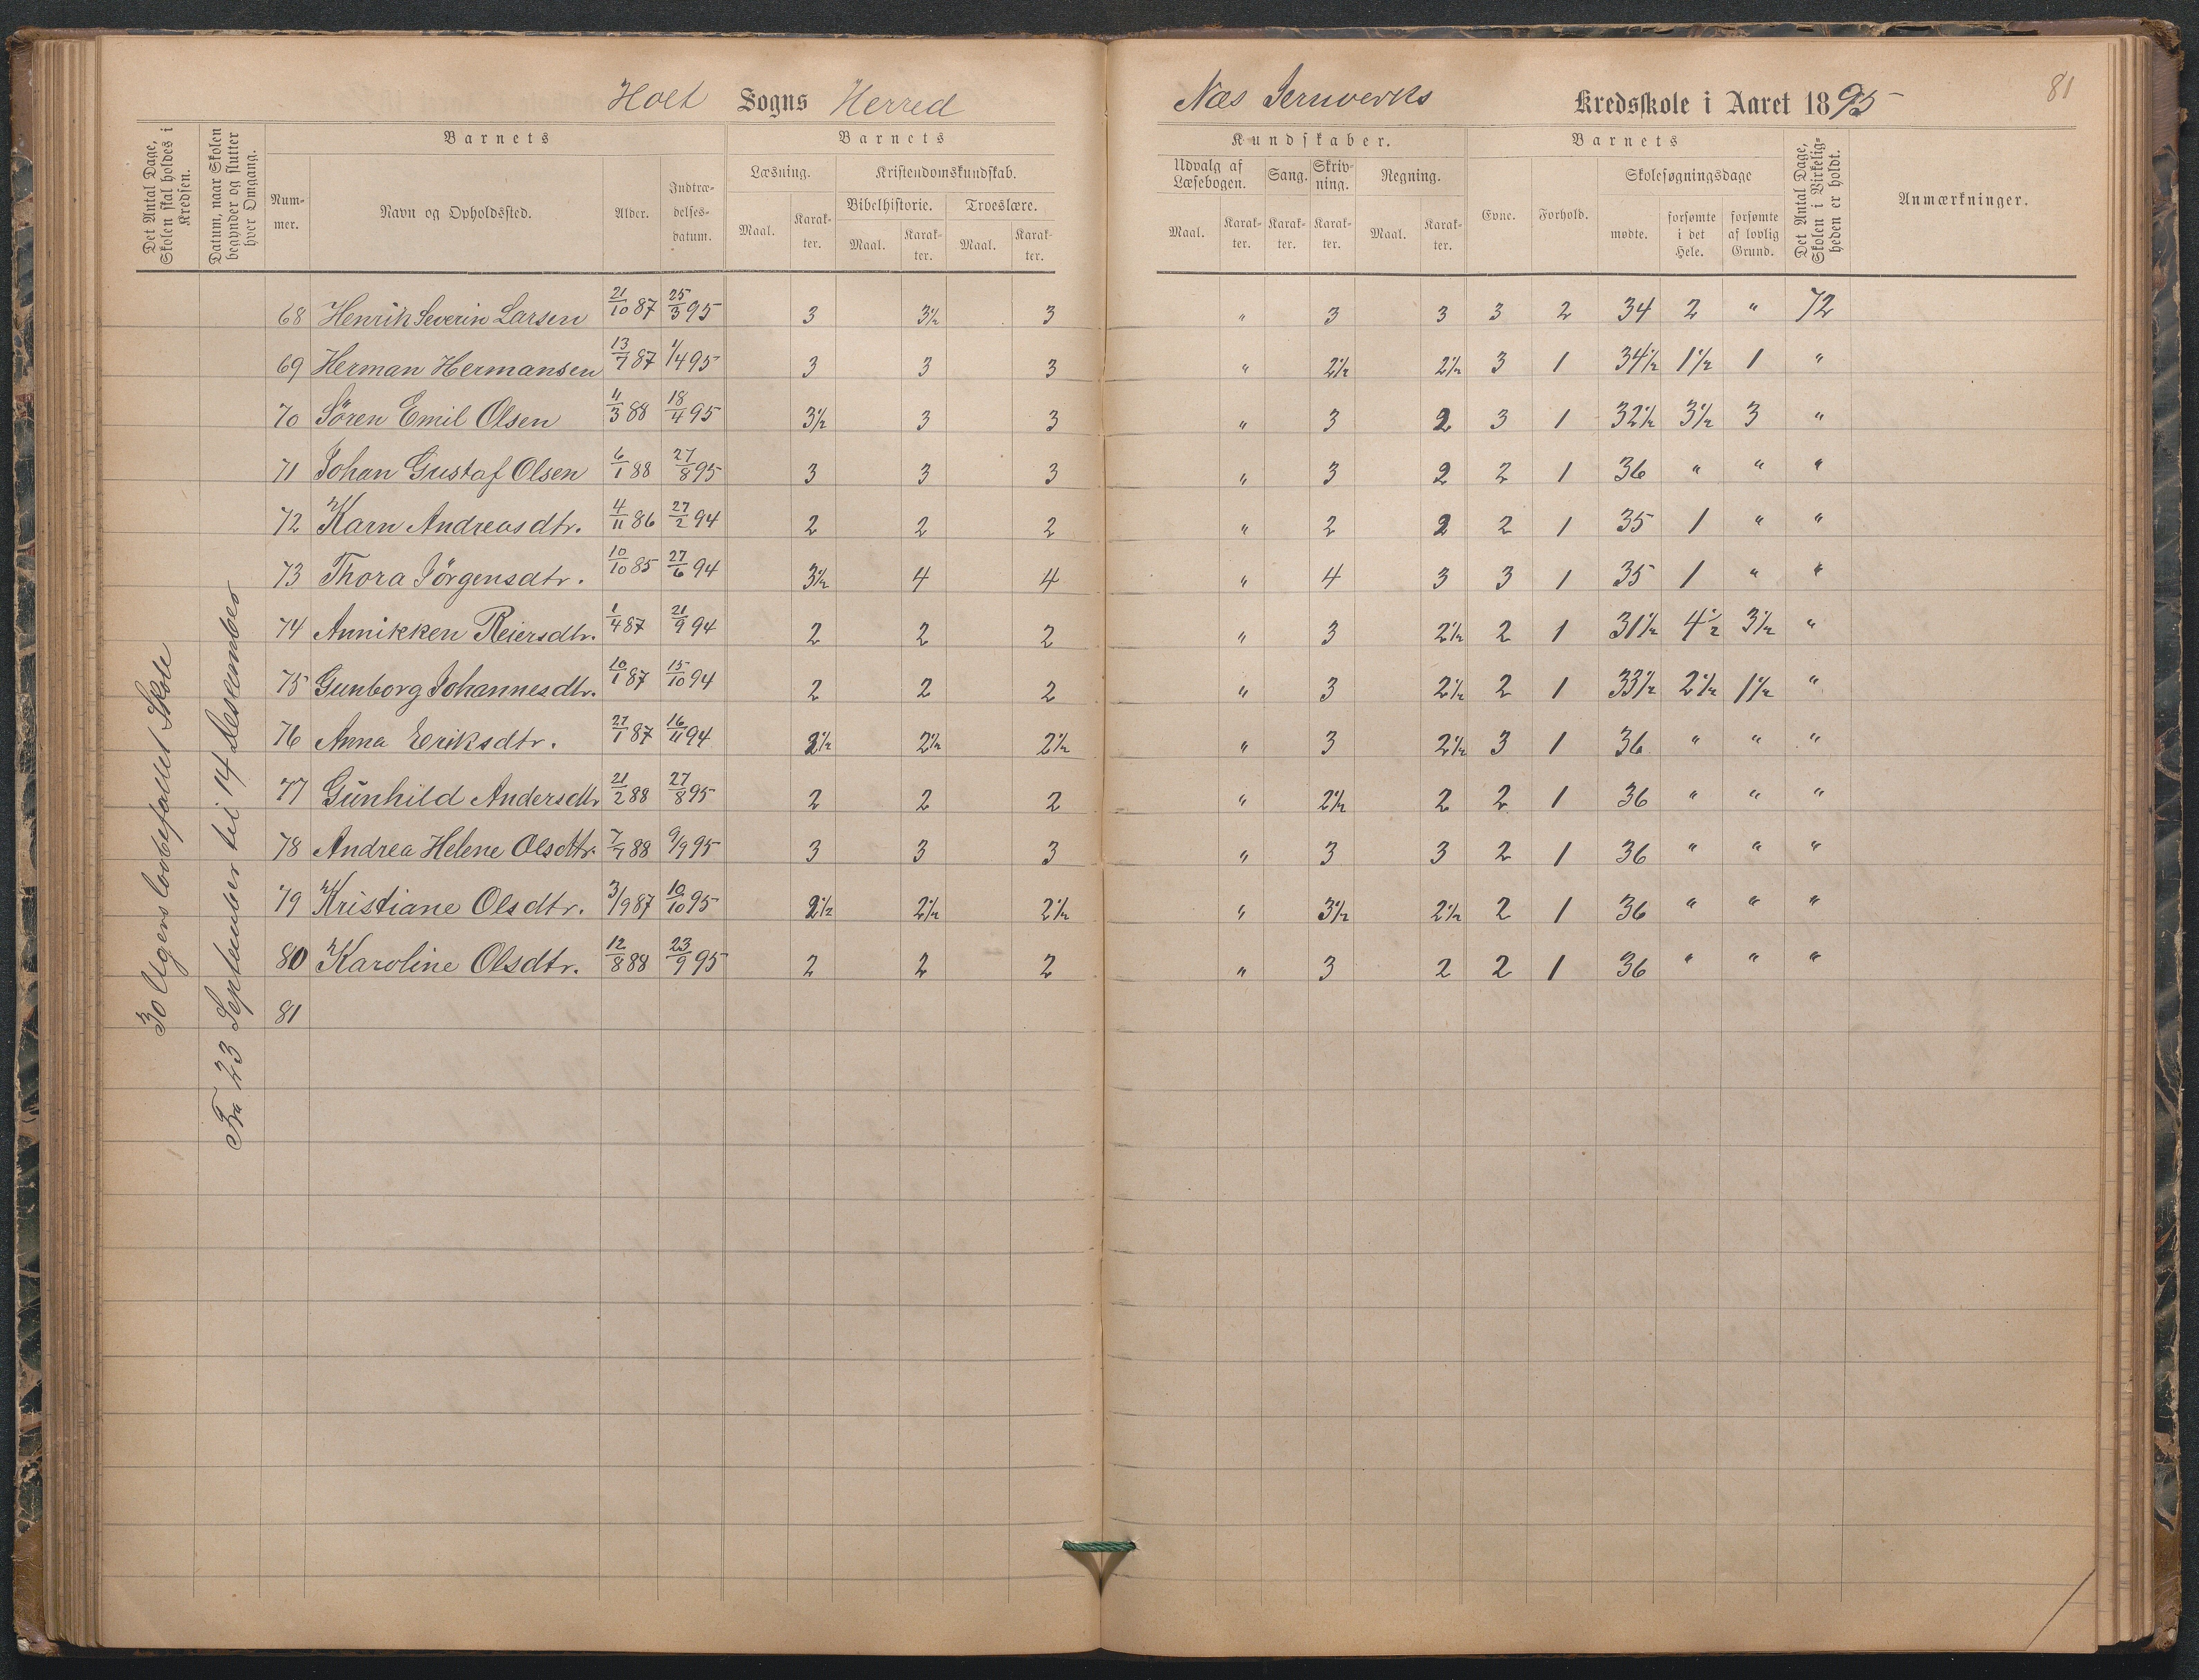 Holt Sogns Herred
Næs Jernverks Kredsskole i Aaret 1895
81
Det Antal Dage, Skolen skal holdes i Kredsen.
Datum, naar Skolen begynder og slutter hver Omgang.
Barnets
Nummer.
Navn og Opholdssted.
Alder.
Indtrædelsesdatum.
Barnets
Læsning.
Maal. Karakter.
Kristendomskundskab.
Bibelhistorie. Troeslære.
Maal. Karakter. Maal. Karakter.
Kundskaber.
Udvalg af Læsebogen. Sang. Skrivning. Regning.
Maal. Karakter. Karakter. Karakter. Maal. Karakter.
Barnets
Evne. Forhold.
Skolesøgningsdage
mødte. forsømte i det Hele. forsømte af lovlig Grund.
Det Antal Dage, Skolen i Virkeligheden er holdt.
Anmærkninger.
30 Ugers lovbefallet Skole
Fra 23 September til 14 Desember
68 Henrik Severin Larsen 21/10 87 25/3 95 3 3½ 3 " 3 3 3 2 34 2 " 72
69 Herman Hermansen 13/7 87 1/4 95 3 3 3 " 2½ 2½ 3 1 34½ 1½ 1 "
70 Sören Emil Olsen 11/3 88 18/4 95 3½ 3 3 " 3 2 3 1 32½ 3½ 3 "
71 Johan Gustaf Olsen 6/1 88 27/8 95 3 3 3 " 3 2 2 1 36 " " "
72 Karn Andreasdtr. 4/11 86 27/2 94 2 2 2 " 2 2 2 1 35 1 " "
73 Thora Jörgensdtr. 10/10 85 27/6 94 3½ 4 4 " 4 3 3 1 35 1 " "
74 Annikken Reiersdtr. 1/4 87 21/9 94 2 2 2 " 3 2½ 2 1 31½ 4½ 3½ "
75 Gunborg Johannesdtr. 10/1 87 15/10 94 2 2 2 " 3 2½ 2 1 33½ 2½ 1½ "
76 Anna Eriksdtr. 27/1 87 16/11 94 2½ 2½ 2½ " 3 2½ 3 1 36 " " "
77 Gunhild Andersdtr 21/2 88 27/8 95 2 2 2 " 2½ 2 2 1 36 " " "
78 Andrea Helene Olsdtr. 7/7 88 9/9 95 3 3 3 " 3 3 2 1 36 " " "
79 Kristiane Olsdtr. 3/9 87 10/10 95 2½ 2½ 2½ " 3½ 2½ 2 1 36 " " "
80 Karoline Olsdtr. 12/8 88 23/9 95 2 2 2 " 3 2 2 1 36 " " "
81